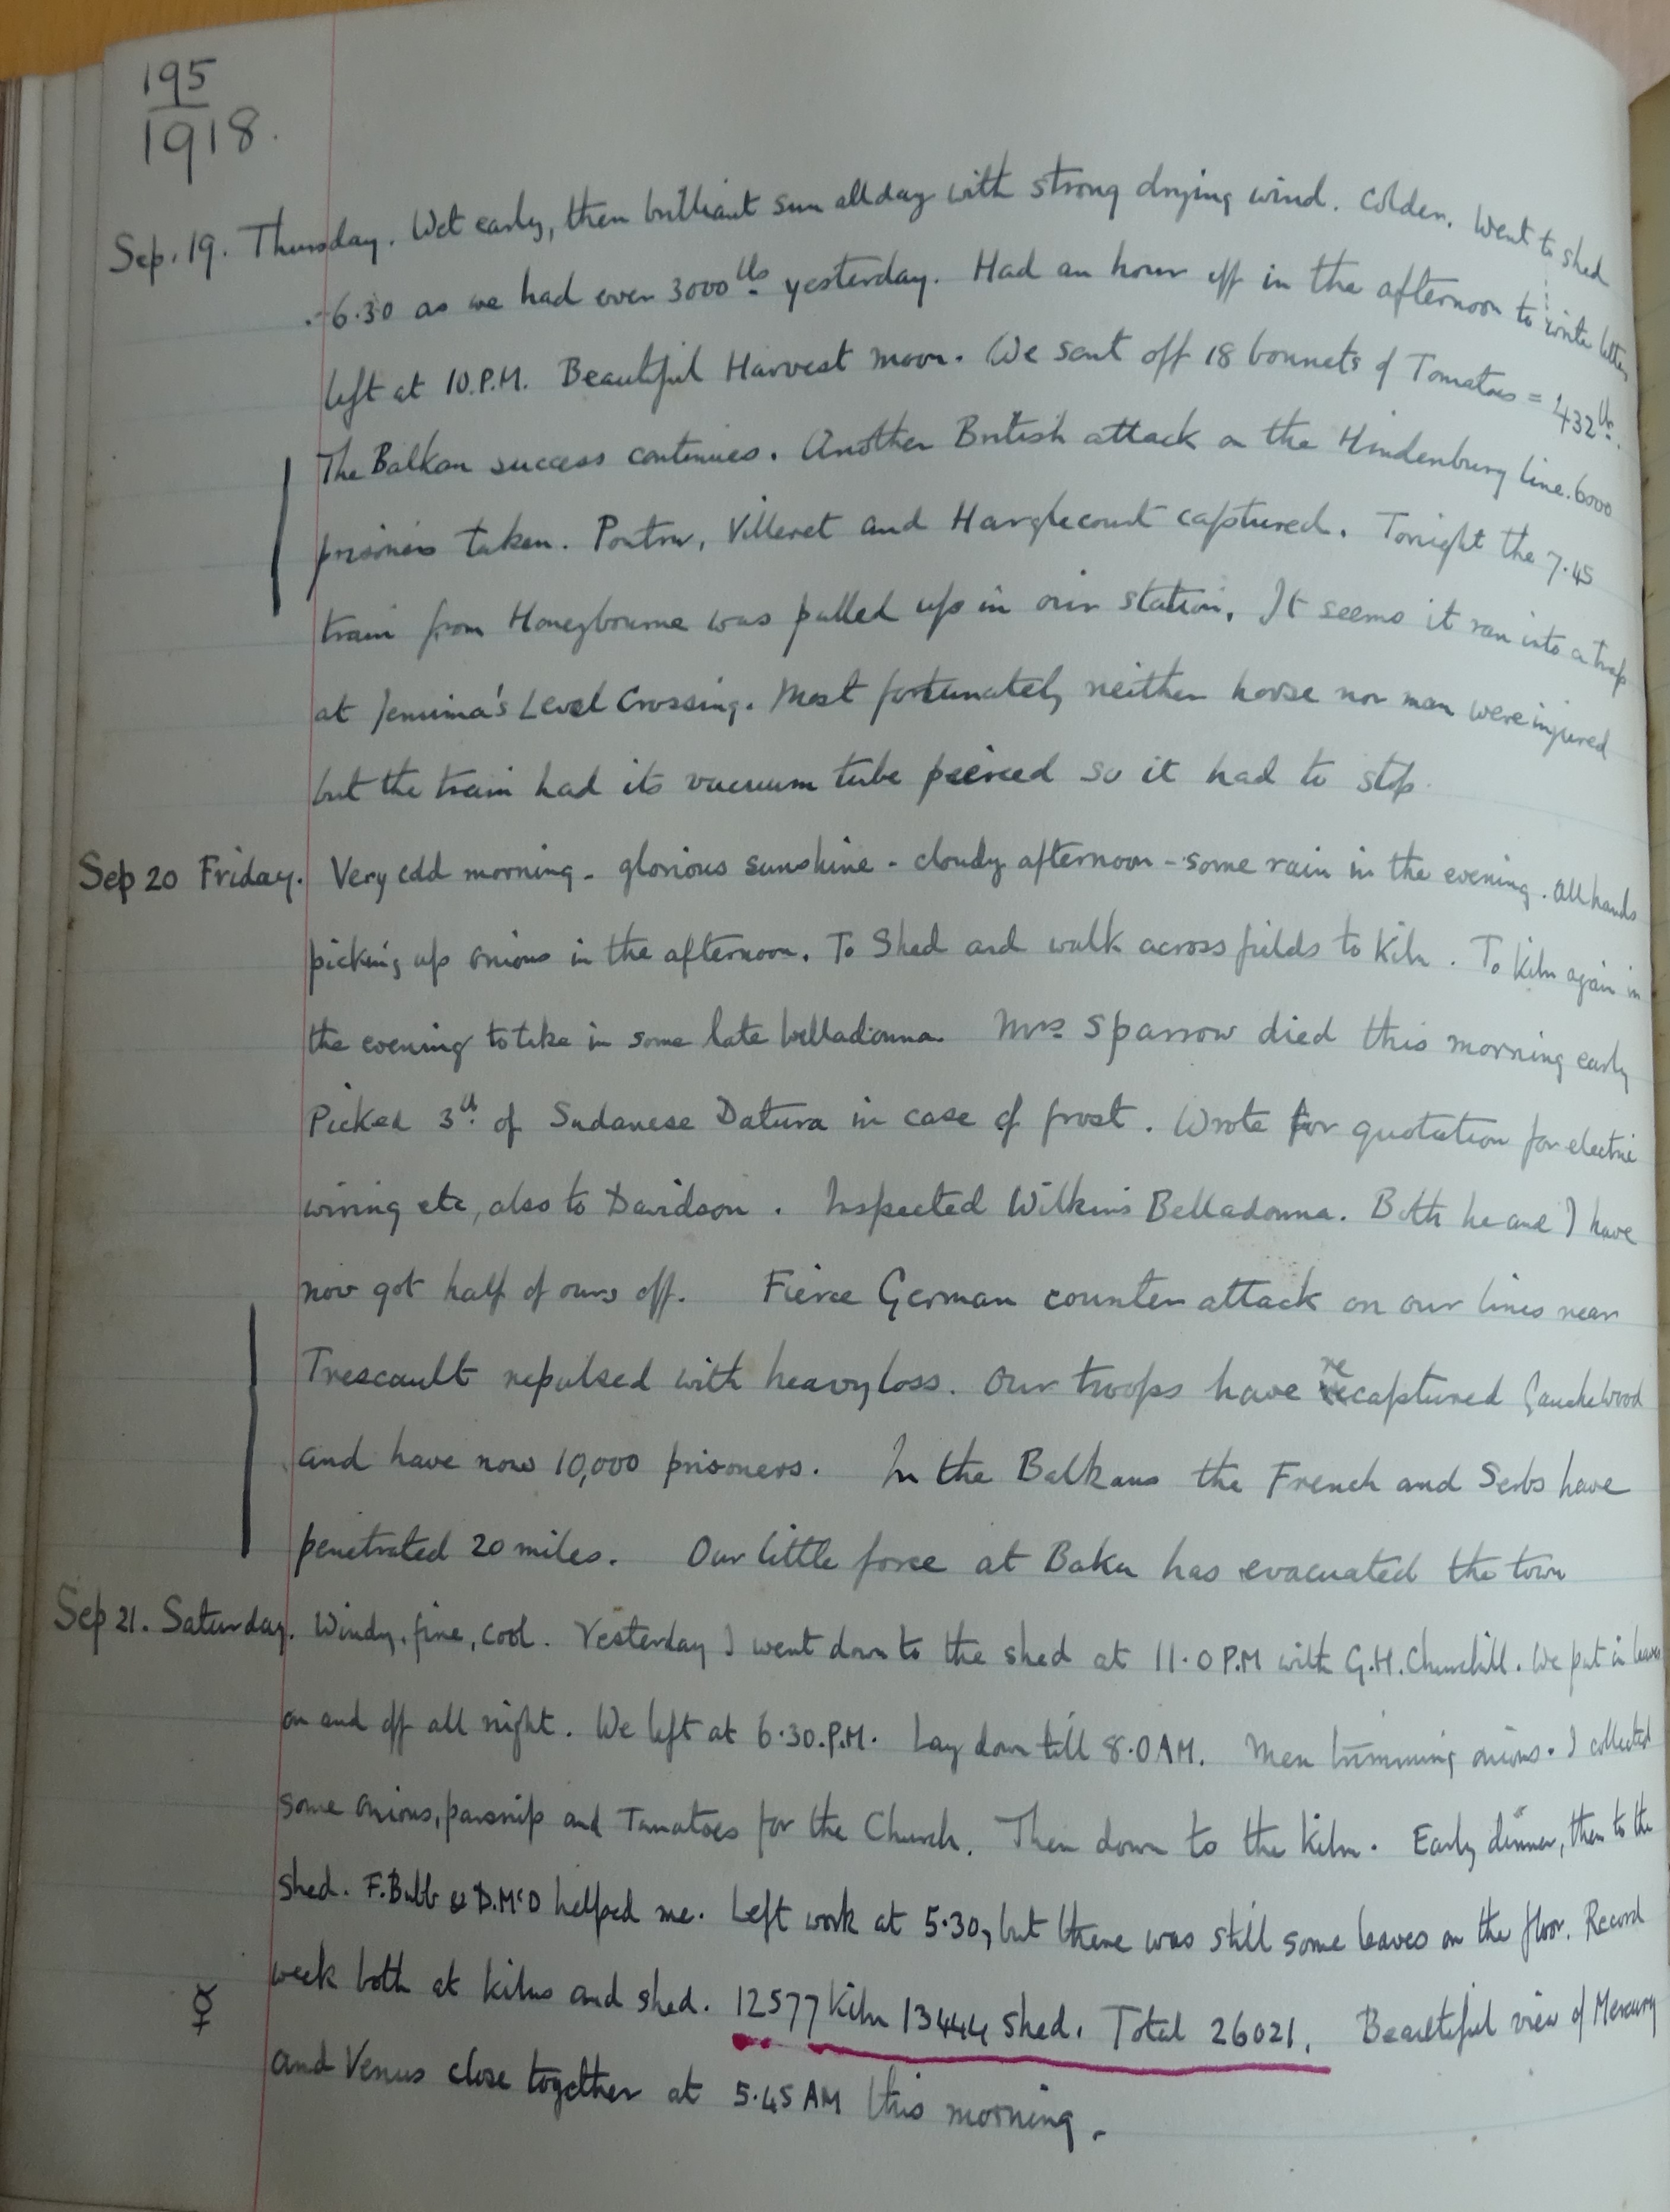 195
1918.
Sep. 19. Thursday. Wet early, then brilliant sun all day with strong drying wind. Colder. Went to shed
6.30 as we had over 3000 lbs yesterday. Had an hour off in the afternoon to write letters
left at 10.P.M. Beautiful Harvest moon. We sent off 18 bonnets of Tomatoes = 432 lbs.
The Balkan success continues. Another British attack on the Hindenburg line. 6000
prisoners taken. Pontru, Villeret and Harglecourt captured. Tonight the 7.45
train from Honeybourne was pulled up in our station. It seems it ran into a trap
at Jemima's Level Crossing. Most fortunately neither horse nor man were injured
but the train had its vacuum tube peirced so it had to stop.
Sep 20 Friday. Very cold morning - glorious sunshine - cloudy afternoon - some rain in the evening. All hands
picking up onions in the afternoon. To Shed and walk across fields to Kiln. To Kiln again in
the evening to take in some late belladonna. Mrs Sparrow died this morning early
Picked 3 lb. of Sudanese Datura in case of frost. Wrote for quotation for electric
wiring etc, also to Davidson. Inspected Wilkins Belladonna. Both he and I have
now got half of ours off. Fierce German counter attack on our lines near
Trescault repulsed with heavy loss. Our troops have recaptured Gauche Wood
and have now 10,000 prisoners. In the Balkans the French and Serbs have
penetrated 20 miles. Our little force at Baku has evacuated the town
Sep 21. Saturday. Windy, fine, cool. Yesterday I went down to the shed at 11.0 P.M with G.H. Churchill. We put in leaves
on and off all night. We left at 6.30.P.M. Lay down till 8.0 AM. Men trimming onions. I collected
some onions, parsnip and Tomatoes for the Church. Then down to the kiln. Early dinner, then to the
shed. F. Bubb & D. McD helped me. Left work at 5.30, but there was still some leaves on the floor. Record
week both at kilns and shed. 12577 Kiln 13444 shed. Total 26021. Beautiful view of Mercury
☿ and Venus close together at 5.45 AM this morning.